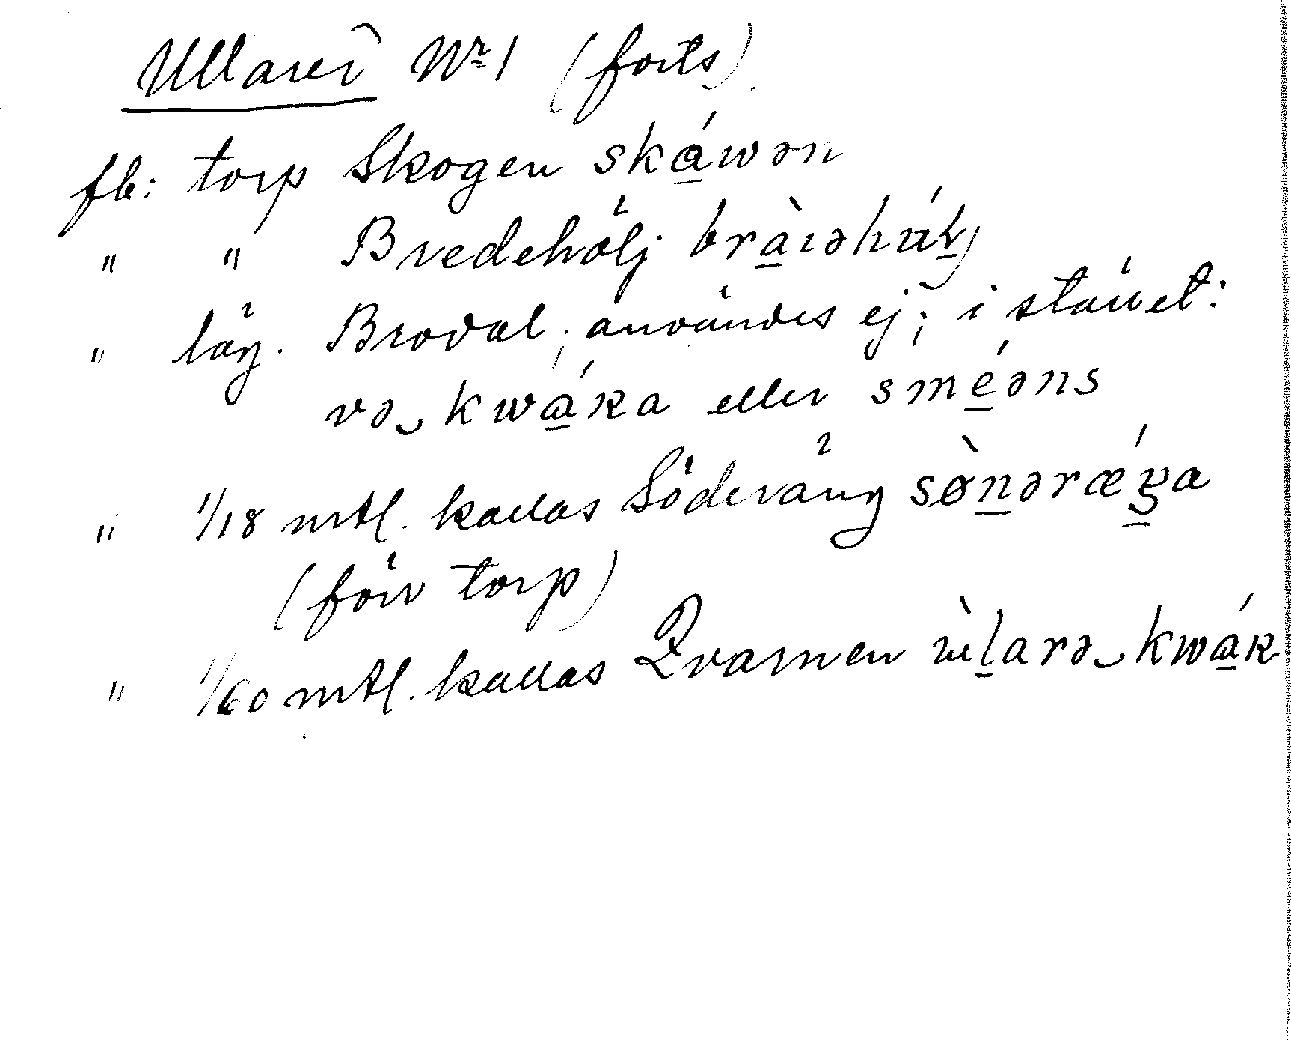 Ullarēd Nr 1 (forts)
fb: torp Skogen ská̱wən
" " Bredehölj brà̱ıəhú
" läg. Brodal, användes ej; i stället:
və‿kwá̱ka eller smé̱əns
" 1/18 mtl. kallas Söderäng sø̀ṉərǽga
(förv torp)
" 1/60 mtl. kallas Qvarnen ùḻarə‿kwá̱k